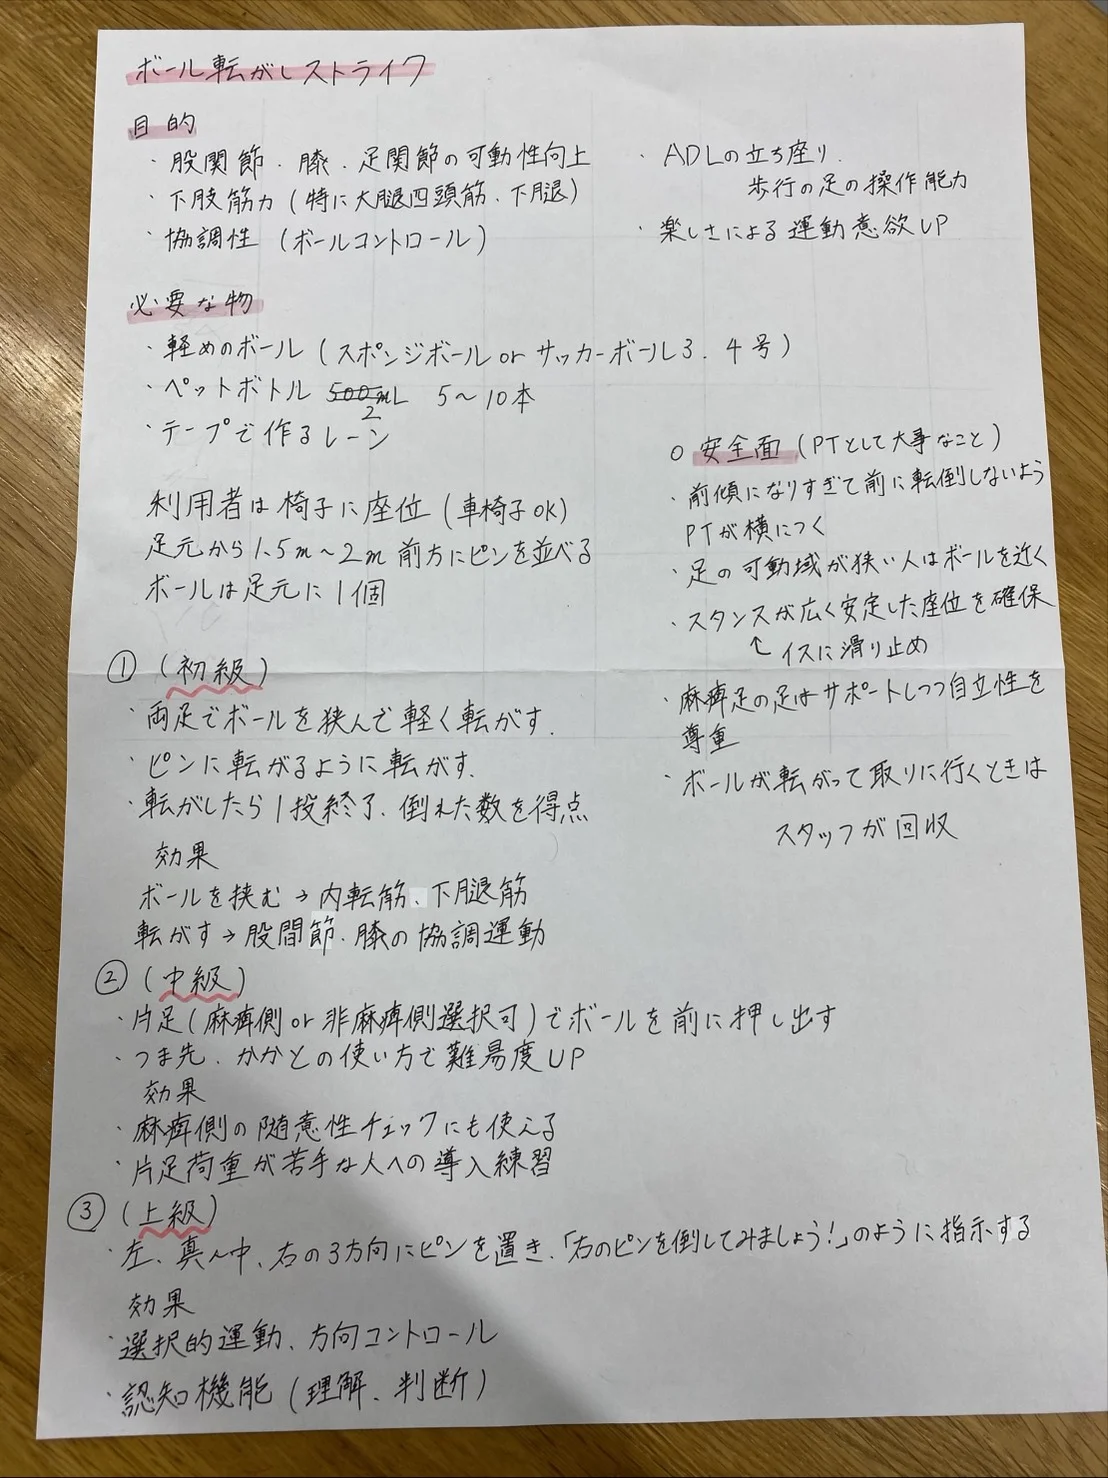 ボール転がしストライク
目的
・股関節．膝．足関節の可動性向上
・下肢筋力（特に大腿四頭筋、下腿）
・協調性（ボールコントロール）
・ADLの立ち座り．
歩行の足の操作能力
・楽しさによる運動意欲UP
必要な物
・軽めのボール（スポンジボール or サッカーボール3．4号）
・ペットボトル 500mL 5〜10本
2
・テープで作るレーン
利用者は椅子に座位（車椅子OK）
足元から1.5m〜2m前方にピンを並べる
ボールは足元に1個
○安全面（PTとして大事なこと）
・前傾になりすぎて前に転倒しないよう
PTが横につく
・足の可動域が狭い人はボールを近く
・スタンスが広く安定した座位を確保
↑イスに滑り止め
・麻痺足の足はサポートしつつ自立性を
尊重
・ボールが転がって取りに行くときは
スタッフが回収
①（初級）
・両足でボールを挟んで軽く転がす．
・ピンに転がるように転がす．
・転がしたら1投終了．倒れた数を得点
効果
ボールを挟む→内転筋、下腿筋
転がす→股間節．膝の協調運動
②（中級）
・片足（麻痺側 or 非麻痺側選択可）でボールを前に押し出す
・つま先．かかとの使い方で難易度UP
効果
・麻痺側の随意性チェックにも使える
・片足荷重が苦手な人への導入練習
③（上級）
・左、真ん中、右の3方向にピンを置き、「右のピンを倒してみましょう！」のように指示する
効果
・選択的運動、方向コントロール
・認知機能（理解、判断）